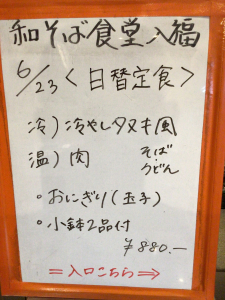 和そば食堂入福
6/23<日替定食>
冷)冷やしタヌキ風
温)肉 そば・うどん
・おにぎり(玉子)
・小鉢2品付
¥880.-
=入口こちら⇒